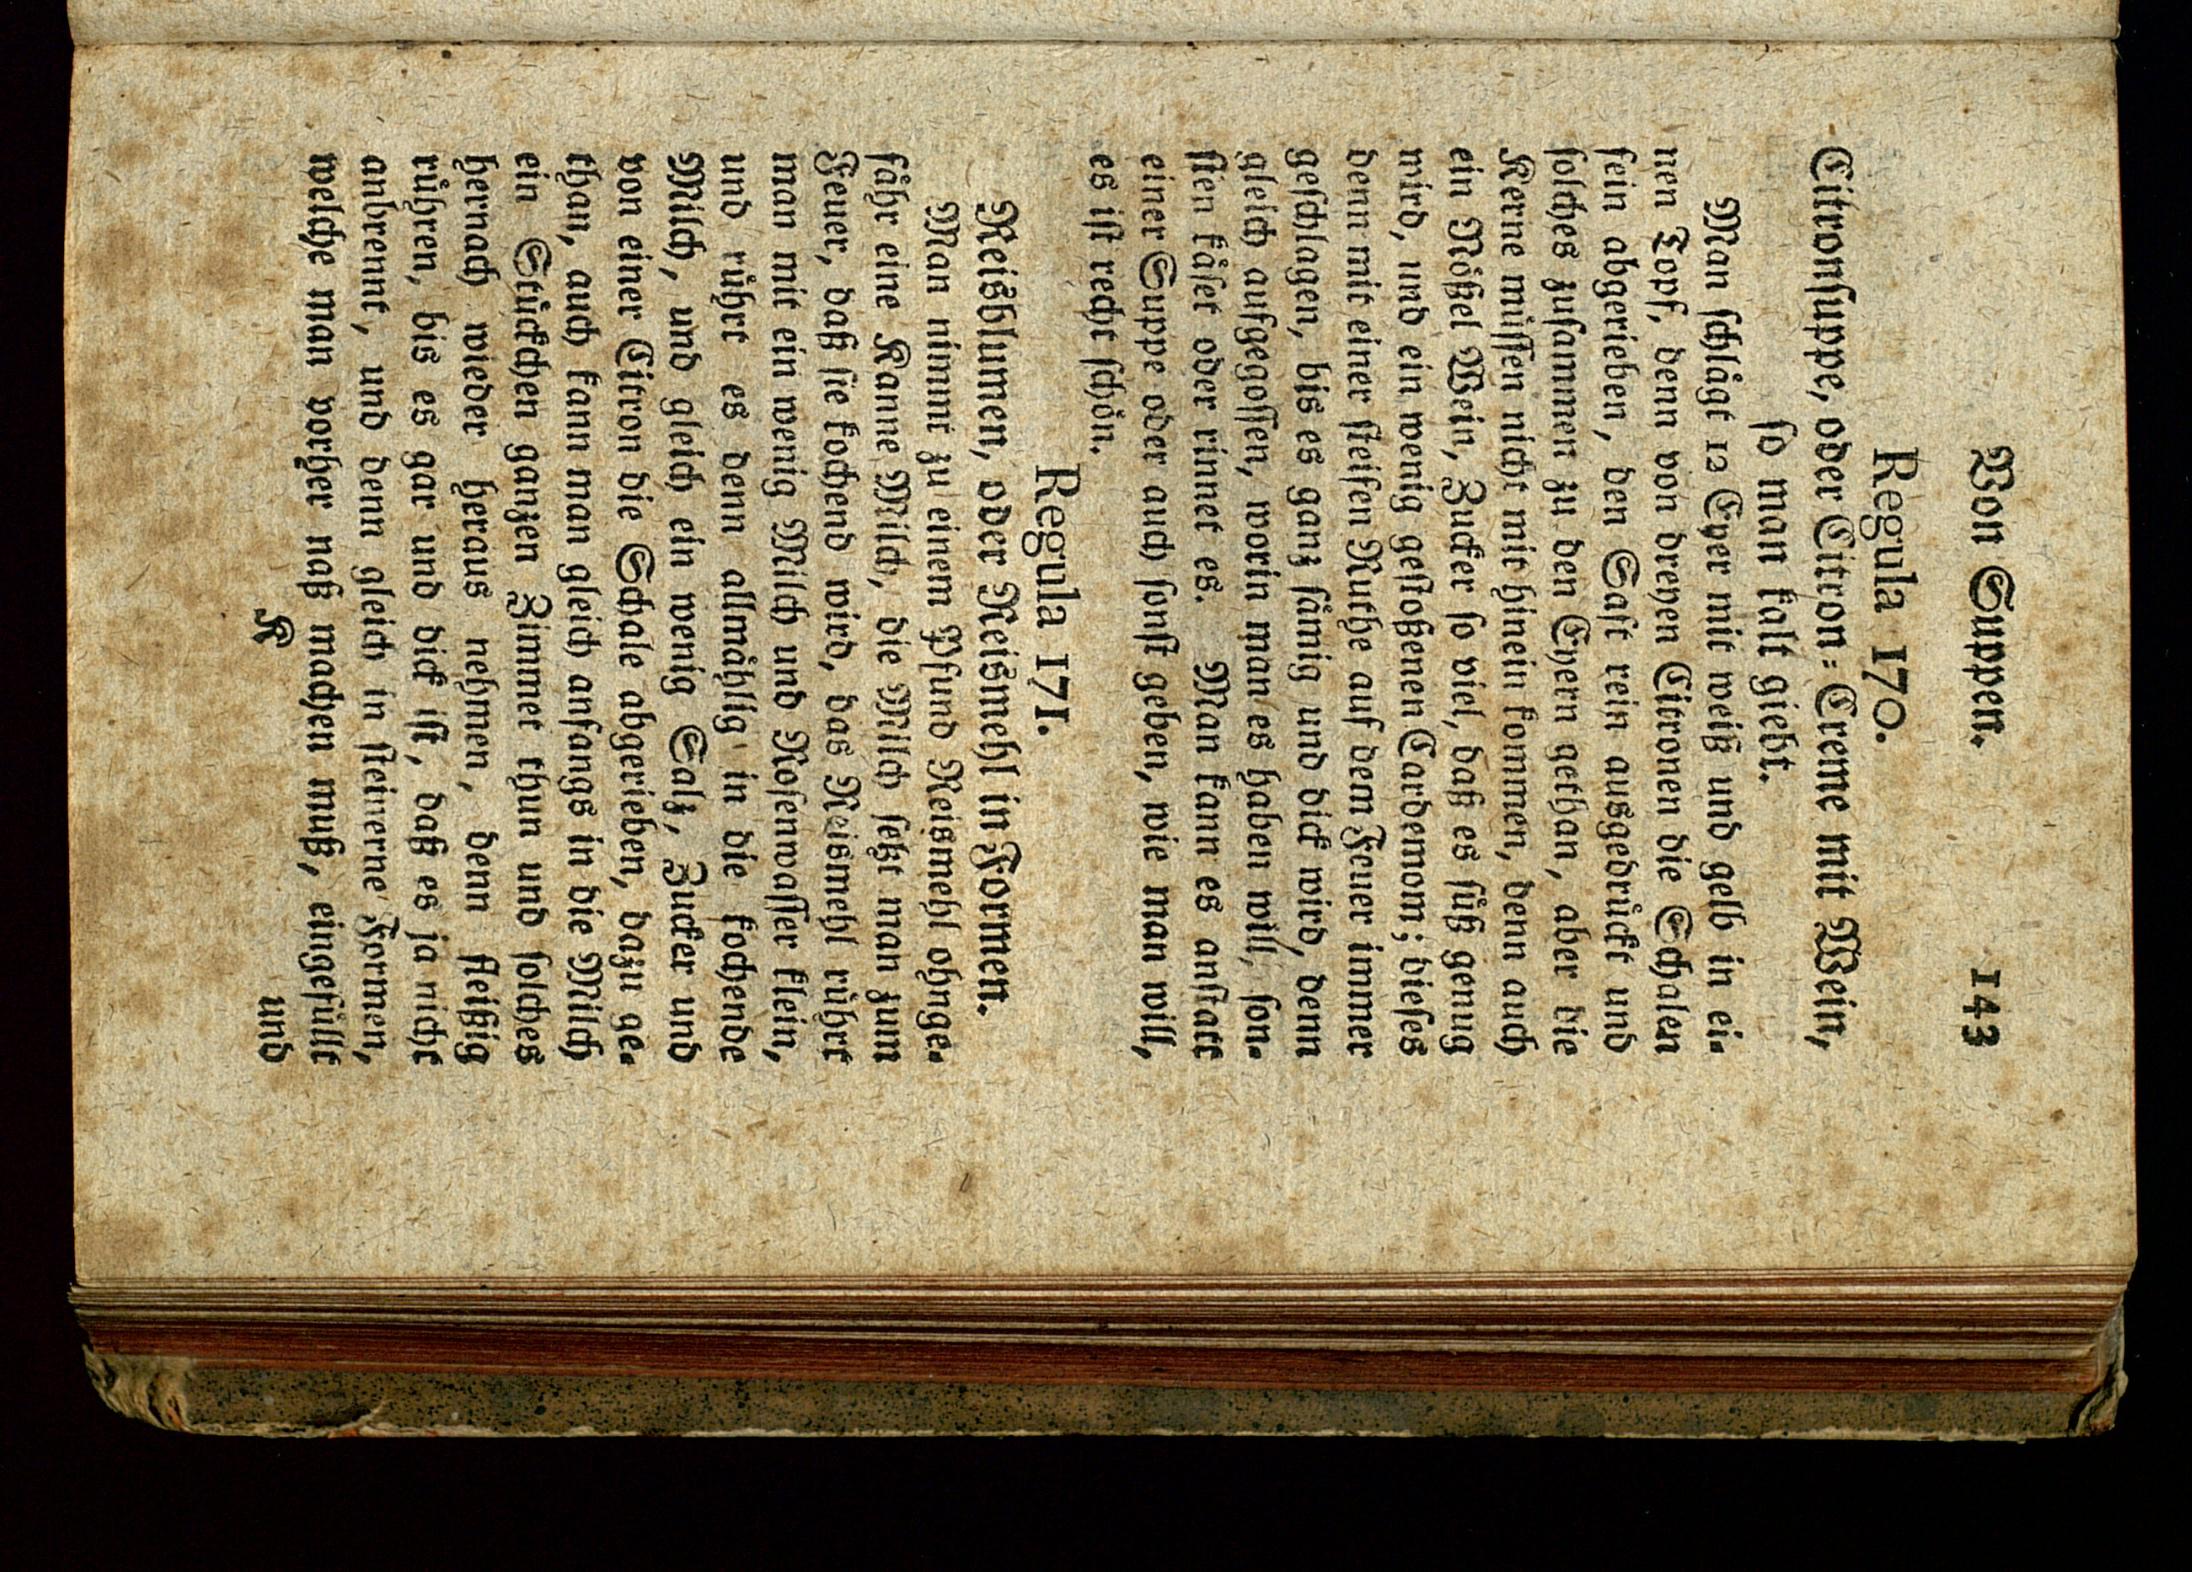 Von Suppen. 143
Regula 170.
Citronſuppe, oder Citron-Creme mit Wein,
ſo man kalt giebt.
Man ſchlägt 12 Eyer mit weiß und gelb in ei-
nen Topf, denn von dreyen Citronen die Schalen
fein abgerieben, den Saft rein ausgedrückt und
ſolches zuſammen zu den Eyern gethan, aber die
Kerne müſſen nicht mit hinein kommen, denn auch
ein Nößel Wein, Zucker ſo viel, daß es ſüß genug
wird, und ein wenig geſtoßenen Cardemom; dieſes
denn mit einer ſteifen Ruthe auf dem Feuer immer
geſchlagen, bis es ganz ſämig und dick wird, denn
gleich aufgegoſſen, worin man es haben will, ſon-
ſten käſet oder rinnet es. Man kann es anſtatt
einer Suppe oder auch ſonſt geben, wie man will,
es iſt recht ſchön.
Regula 171.
Reisblumen, oder Reismehl in Formen.
Man nimmt zu einem Pfund Reismehl ohnge-
fähr eine Kanne Milch, die Milch ſetzt man zum
Feuer, daß ſie kochend wird, das Reismehl rührt
man mit ein wenig Milch und Roſenwaſſer klein,
und rührt es denn allmählig in die kochende
Milch, und gleich ein wenig Salz, Zucker und
von einer Citron die Schale abgerieben, dazu ge-
than, auch kann man gleich anfangs in die Milch
ein Stückchen ganzen Zimmet thun und ſolches
hernach wieder heraus nehmen, denn fleißig
rühren, bis es gar und dick iſt, daß es ja nicht
anbrennt, und denn gleich in ſteinerne Formen,
welche man vorher naß machen muß, eingefüllt
K und